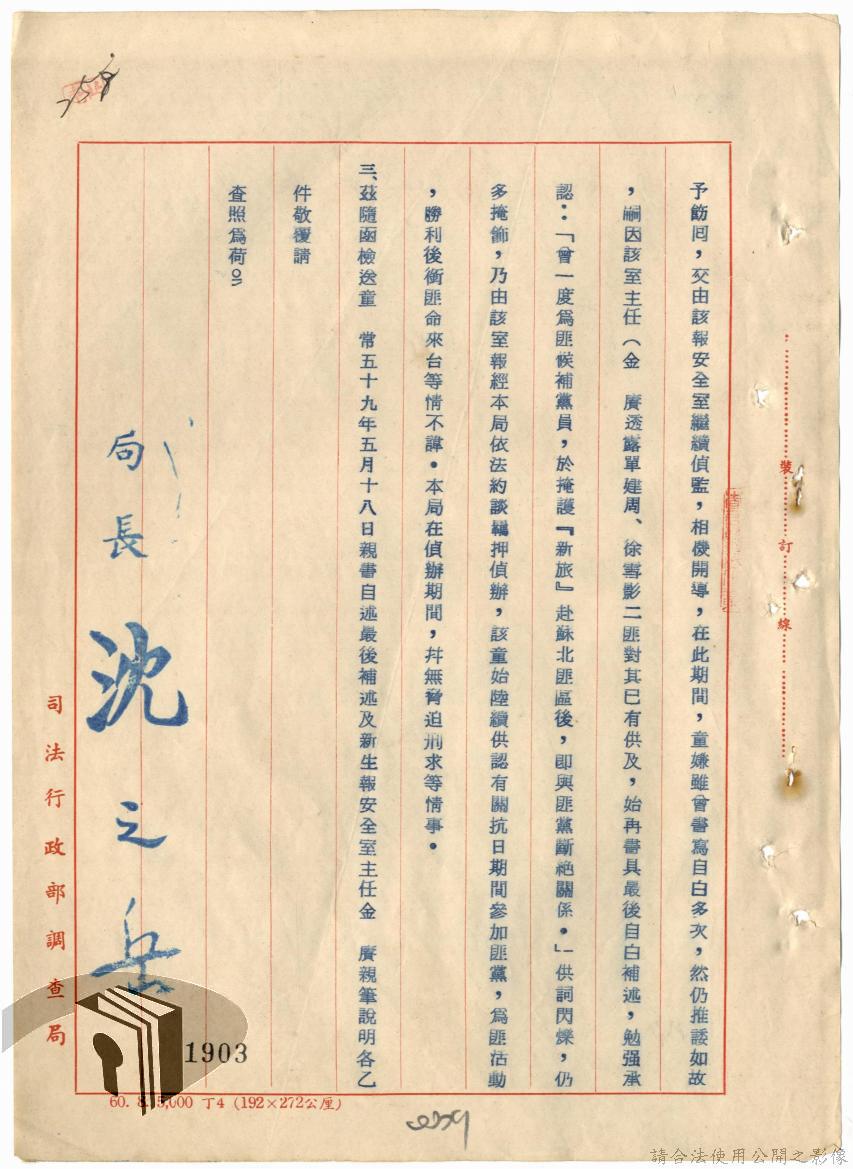 予飭回，交由該報安全室繼續偵監，相機開導，在此期間，童嫌雖曾書寫自白多次，然仍推諉如故
，嗣因該室主任（金　廣透露單建周、徐雪影二匪對其已有供及，始再書具最後自白補述，勉强承
認：「曾一度爲匪候補黨員，於掩護『新旅』赴蘇北匪區後，即與匪黨斷絶關係。」供詞閃爍，仍
多掩飾，乃由該室報經本局依法約談羈押偵辦，該童始陸續供認有關抗日期間參加匪黨，爲匪活動
，勝利後銜匪命來台等情不諱。本局在偵辦期間，幷無脅迫刑求等情事。
三、茲隨函檢送童　常五十九年五月十八日親書自述最後補述及新生報安全室主任金　廣親筆說明各乙
件敬覆請
查照爲荷。
局長　沈之岳
司法行政部調查局
裝訂線
1903
60. 8. 5,000 丁4 (192×272公厘)
請合法使用公開之影像